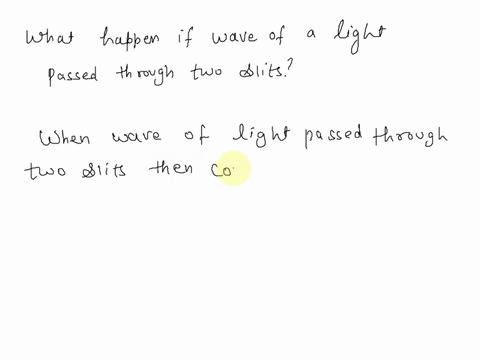 What happen if wave of a light
passed through two slits?
When wave of light passed through
two slits then co